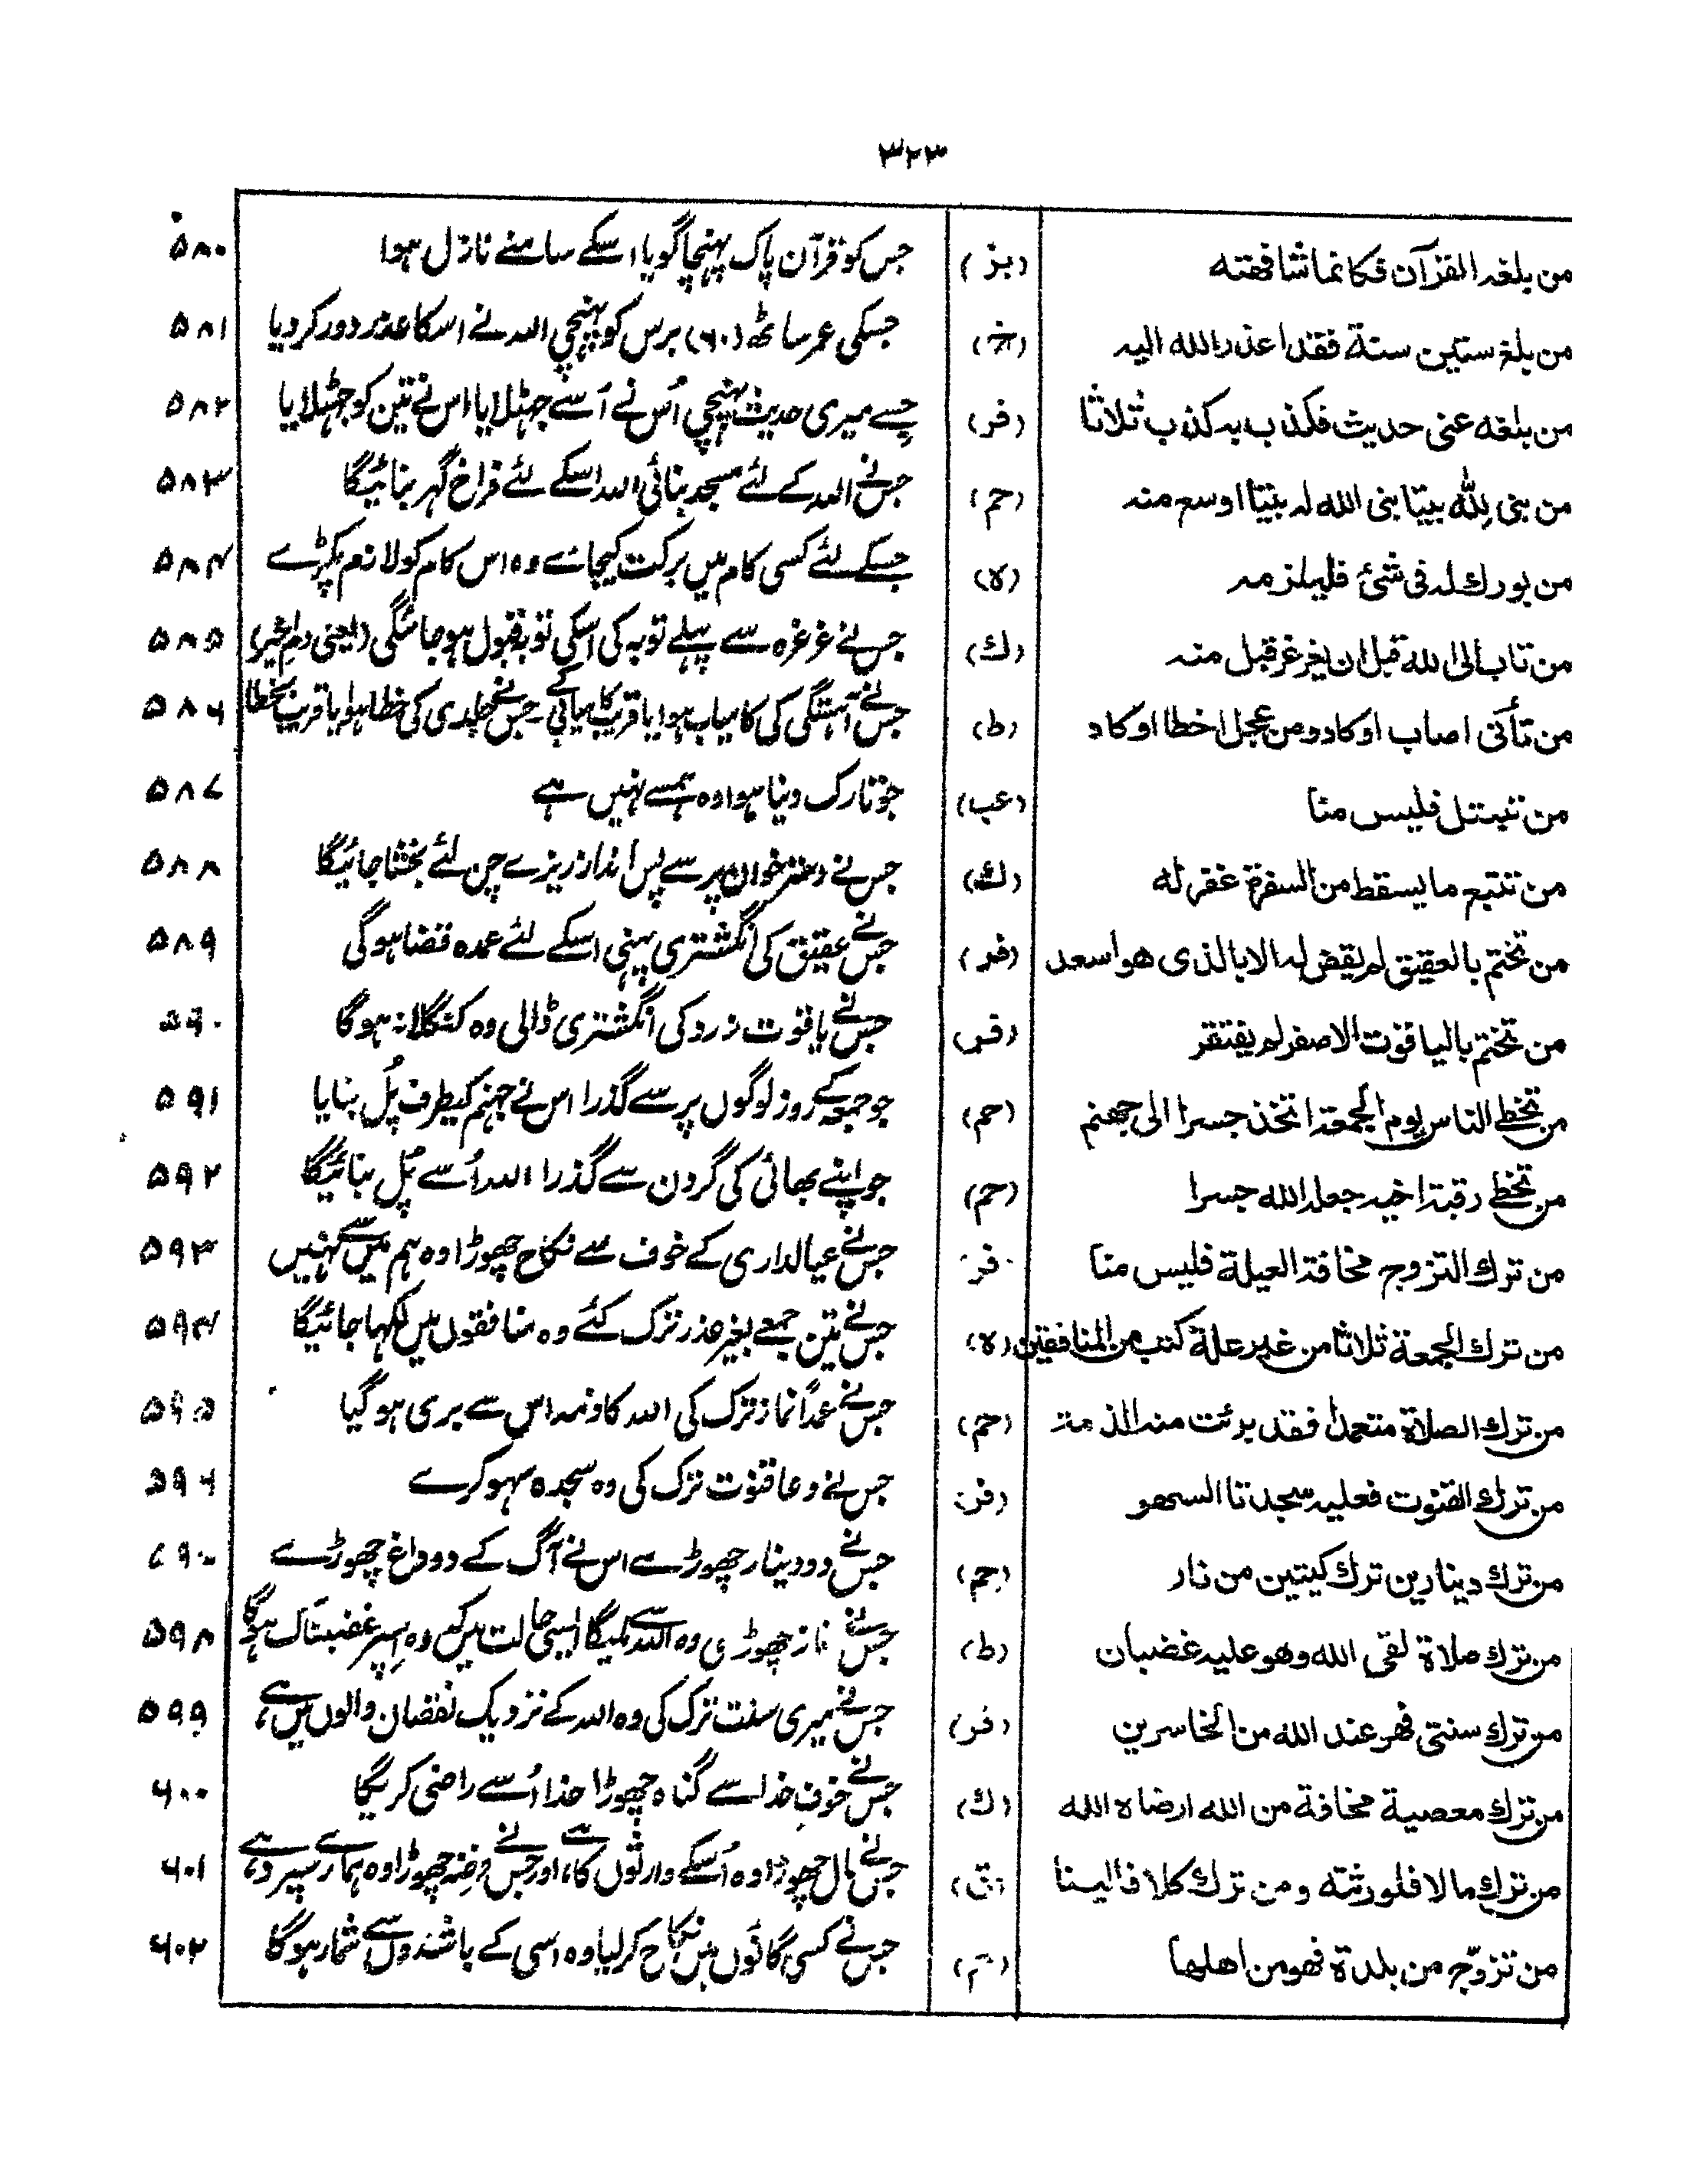 ۳۲۳
من بلغه القرآن فكانما شافهته (بز) جس کو قرآن پاک پہنچا گویا اسکے سامنے نازل ہوا ۵۸۰
من بلغ ستين سنة فقد اعذر الله اليه جسکی عمر ساٹھ (۶۰) برس کو پہنچی اللہ نے اسکا عذر دور کردیا ۵۸۱
من بلغه عنى حديث فكذب به كذب ثلاثا (فر) جسے میری حدیث پہنچی اُس نے اُسے جہٹلایا اس نے تین کو جہٹلایا ۵۸۲
من بنى لله بيتا بنى الله له بيتا اوسع منه (حم) جس نے اللہ کے لئے مسجد بنائی اللہ اسکے لئے فراخ گہر بنائیگا ۵۸۳
من بورك له فى شئ فليلزمه (ه) جسکے لئے کسی کام میں برکت کیجائے وہ اس کام کو لازم پکڑے ۵۸۴
من تاب الى الله قبل ان يغرغر قبل منه (ك) جس نے غرغرہ سے پہلے توبہ کی اسکی توبہ قبول ہوجائگی (یعنی دم اخیر) ۵۸۵
من تأنى اصاب اوكاد ومن عجل اخطا اوكاد (ط) جس نے آہستگی کی کامیاب ہوا یا قریب کامیابی کے۔ جس نے جلدی کی خطا ہوا یا قریب بخطا ۵۸۶
من تبتل فليس منا (عب) جو تارک دنیا ہوا وہ ہمسے نہیں ہے ۵۸۷
من تتبع ما يسقط من السفرة غفر له (ك) جس نے دسترخوان پر سے پس انداز ریزے چن لئے بخشا جائیگا ۵۸۸
من تختم بالعقيق لم يقض له الا بالذى هو اسعد (فر) جس نے عقیق کی انگشتری پہنی اسکے لئے عمدہ قضا ہوگی ۵۸۹
من تختم بالياقوت الاصفر لم يفتقر (فر) جس نے یاقوت زرد کی انگشتری ڈالی وہ کنگلا نہ ہوگا ۵۹۰
من تخطے الناس يوم الجمعة اتخذ جسرا الى جهنم (حم) جو جمعہ کے روز لوگوں پر سے گذرا اس نے جہنم کیطرف پُل بنایا ۵۹۱
من تخطے رقبة اخيه جعله الله جسرا (حم) جو اپنے بھائی کی گردن سے گذرا اللہ اُسے پُل بنائیگا ۵۹۲
من ترك التزوج مخافة العيلة فليس منا فر جس نے عیالداری کے خوف سے نکاح چھوڑا وہ ہم میں سے نہیں ۵۹۳
من ترك الجمعة ثلاثا من غير علة كتب من المنافقين (ه) جس نے تین جمعے بغیر عذر ترک کئے وہ منافقوں میں لکہا جائیگا ۵۹۴
من ترك الصلاة متعمدا فقد برئت منه الذمة (حم) جس نے عمدًا نماز ترک کی اللہ کا ذمہ اس سے بری ہوگیا ۵۹۵
من ترك القنوت فعليه سجدتا السهو (فر) جس نے دعا قنوت ترک کی وہ سجدہ سہو کرے ۵۹۶
من ترك دينارين ترك كيتين من نار (حم) جس نے دو دینار چھوڑے اس نے آگ کے دو داغ چھوڑے ۵۹۷
من ترك صلاة لقى الله وهو عليه غضبان (ط) جس نے نماز چھوڑی وہ اللہ سے ملیگا ایسی حالت میں کہ وہ اسپر غضبناک ہوگا ۵۹۸
من ترك سنتى فهو عند الله من الخاسرين (فر) جس نے میری سنت ترک کی وہ اللہ کے نزدیک نقصان والوں میں ہے ۵۹۹
من ترك معصية مخافة من الله ارضاه الله (ك) جس نے خوف خدا سے گناہ چھوڑا خدا اُسے راضی کریگا ۶۰۰
من ترك مالا فلورثته ومن ترك كلا فالينا (ق) جس نے مال چھوڑا وہ اُسکے وارثوں کا ہے اور جس نے قرضہ چھوڑا وہ ہمارے سپرد ہے ۶۰۱
من تزوّج من بلدة فهو من اهلها جس نے کسی گائوں میں نکاح کرلیا وہ اسی کے باشندوں سے شمار ہوگا ۶۰۲